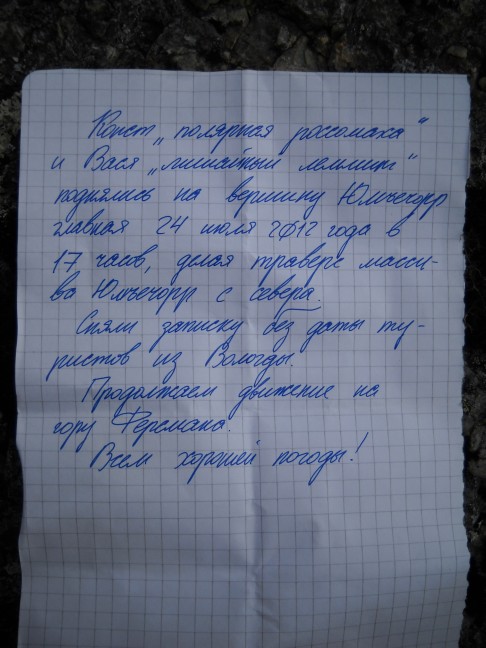 Конст „полярная россомаха“
и Вася „лишайный лемминг“
поднялись на вершину Юмъечорр
главная 24 июля 2012 года в
17 часов, делая траверс масси-
ва Юмъечорр с севера.
Сняли записку без даты ту-
ристов из Вологды.
Продолжаем движение на
гору Ферсмана.
Всем хорошей погоды!